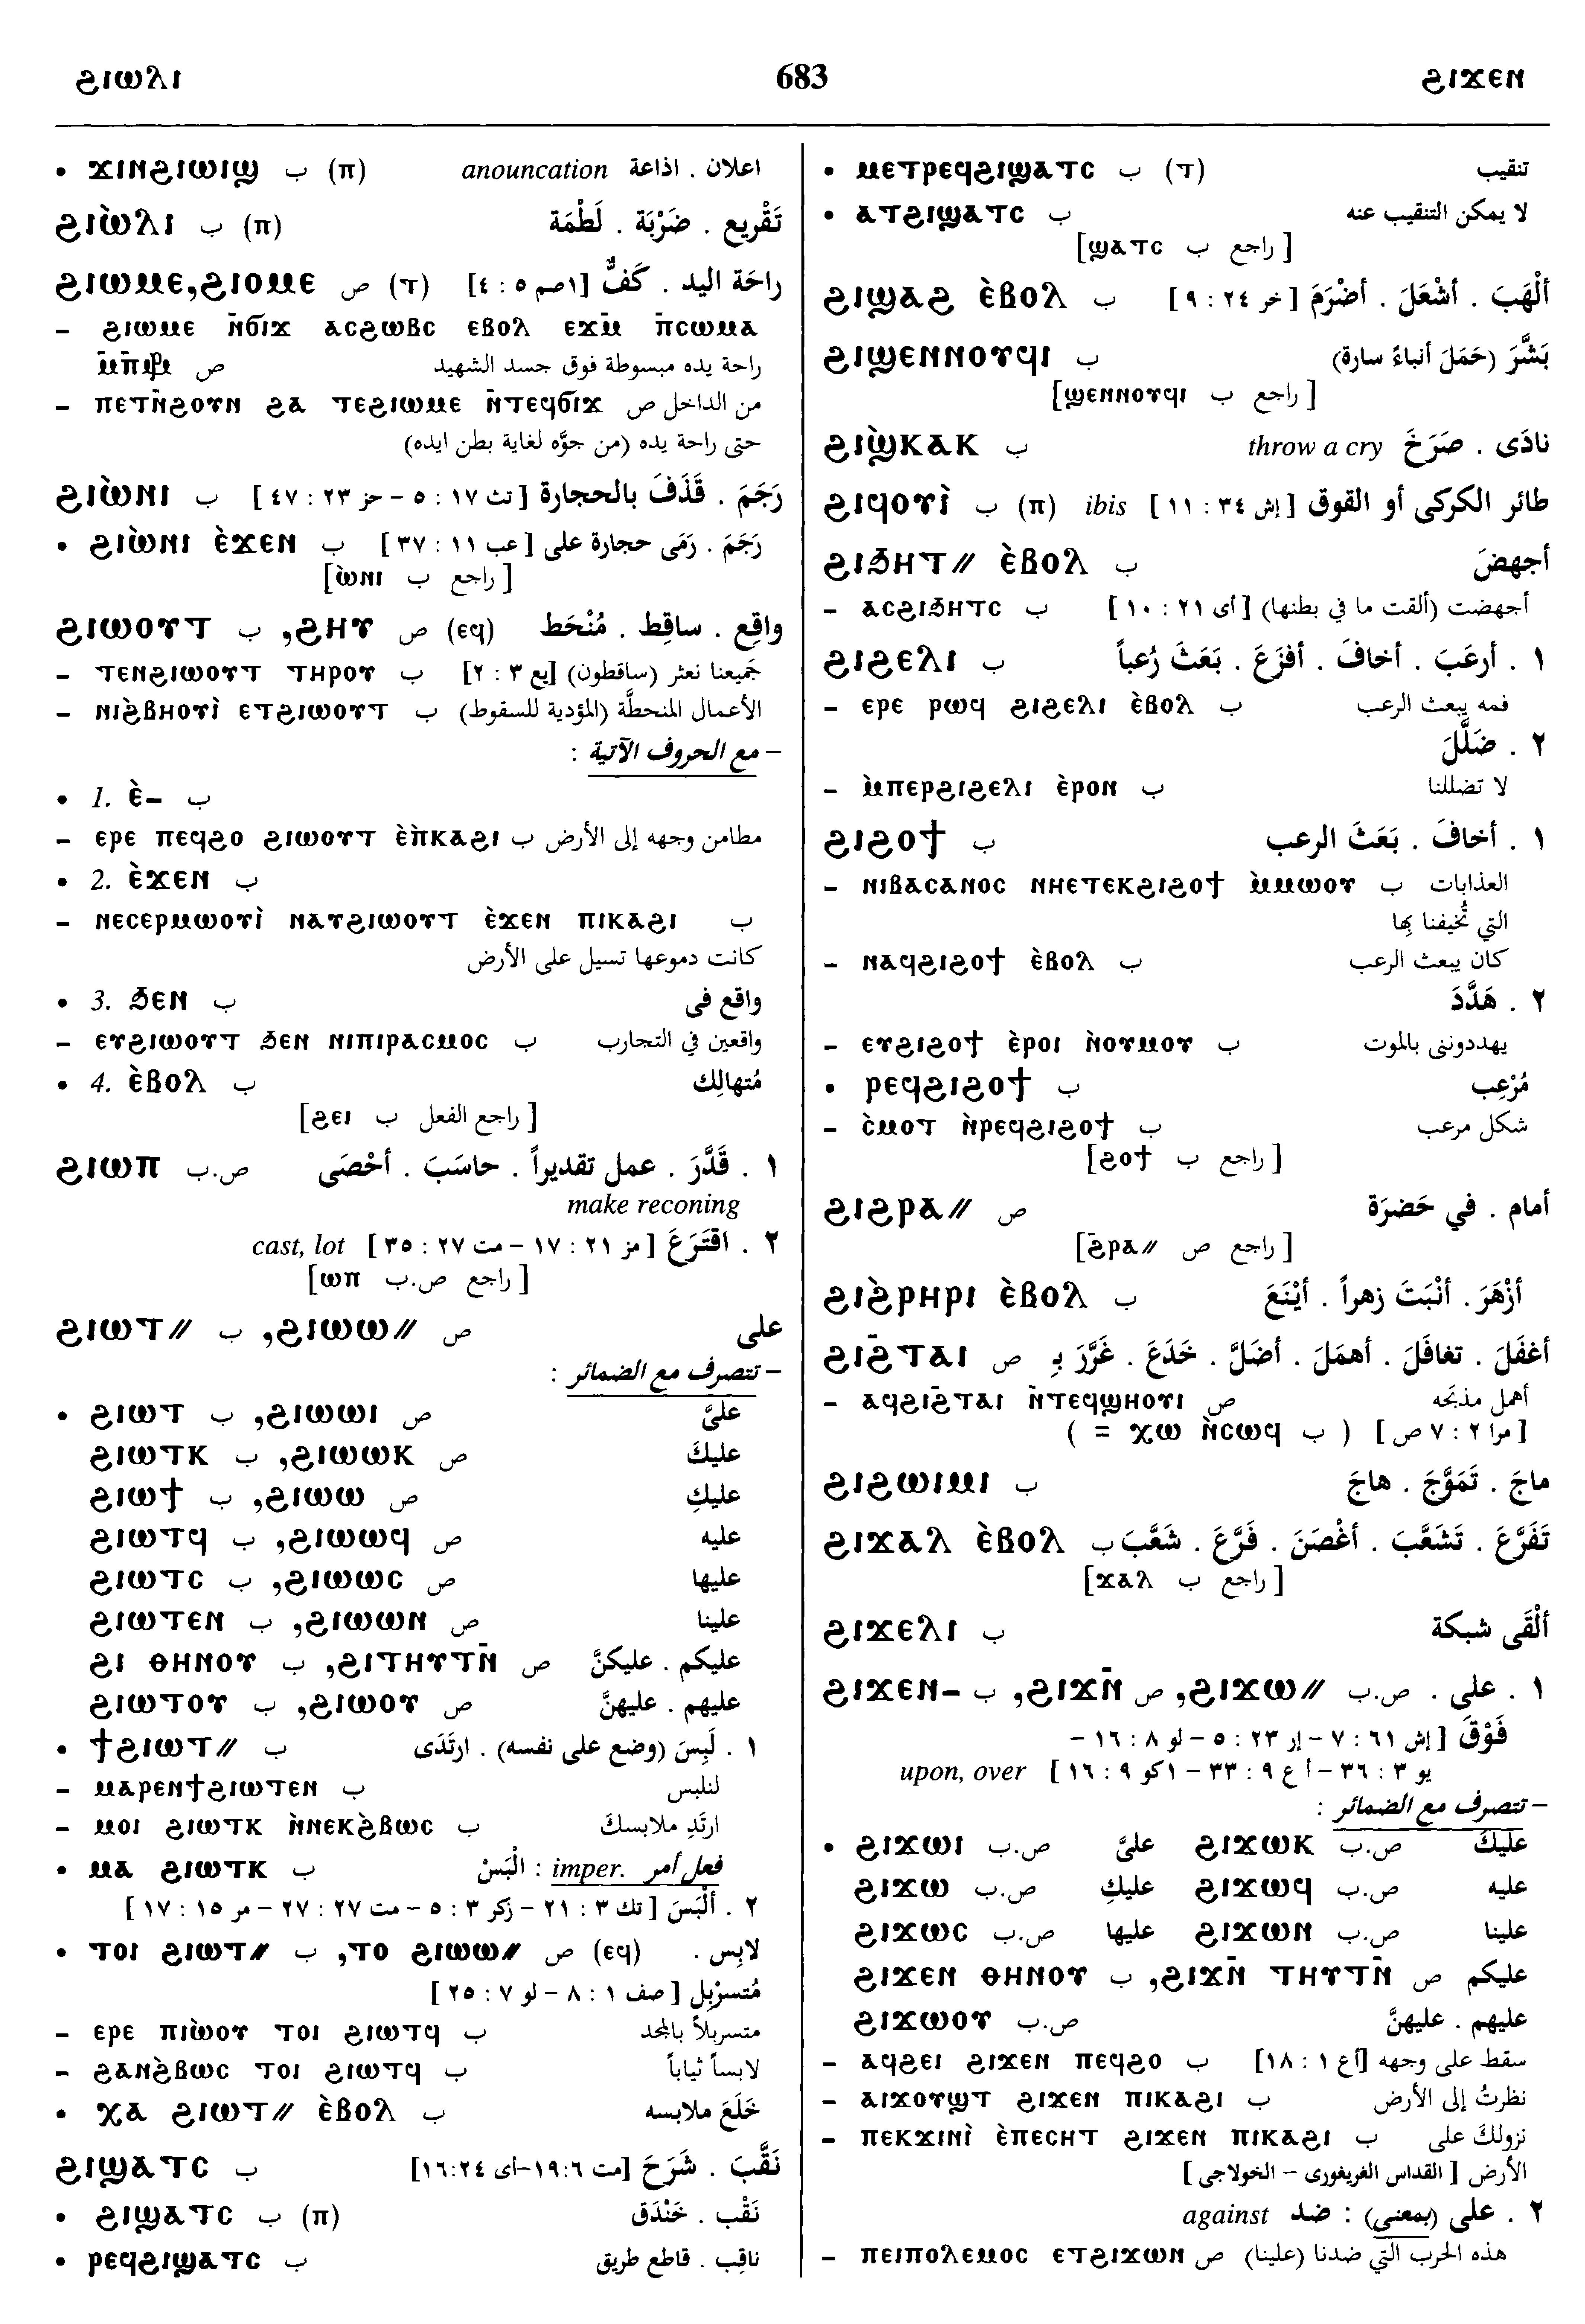 ϩⲓⲱⲗⲓ 683 ϩⲓϫⲉⲛ
• ϫⲓⲛϩⲓⲱⲓϣ ب (ⲡ) anouncation اعلان . اذاعة
ϩⲓⲱ̀ⲗⲓ ب (ⲡ) تَقْريع . ضَرْبَة . لَطْمَة
ϩⲓⲱⲙⲉ, ϩⲓⲟⲙⲉ ص (ⲧ) راحَة اليد . كَفٌّ [١صم ٥ : ٤]
– ϩⲓⲱⲙⲉ ⲛ̄ϭⲓϫ ⲁⲥϩⲱⲃⲥ ⲉⲃⲟⲗ ⲉϫⲙ̄ ⲡ̄ⲥⲱⲙⲁ
ص راحة يده مبسوطة فوق جسد الشهيد
– ⲡⲉⲧⲛ̄ϩⲟⲩⲛ ϩⲁ ⲧⲉϩⲓⲱⲙⲉ ⲛ̄ⲧⲉϥϭⲓϫ من الداخل ص
حتى راحة يده (من جوَّه لغاية بطن ايده)
ϩⲓⲱ̀ⲛⲓ ب رَجَمَ . قَذَفَ بالحجارة [تث ١٧ : ٥ – حز ٢٣ : ٤٧]
• ϩⲓⲱ̀ⲛⲓ ⲉ̀ϫⲉⲛ ب رَجَمَ . رَمَى حجارة على [عب ١١ : ٣٧]
[راجع ب ⲱ̀ⲛⲓ]
ϩⲓⲱⲟⲩⲧ ب, ϩⲏⲩ ص (ⲉϥ) واقِع . ساقِط . مُنْحَط
– ⲧⲉⲛϩⲓⲱⲟⲩⲧ ⲧⲏⲣⲟⲩ ب جَميعنا نعثر (ساقطون) [يع ٣ : ٢]
– ⲛⲓϩ̀ⲃⲏⲟⲩⲓ̀ ⲉⲧϩⲓⲱⲟⲩⲧ ب الأعمال المنحطَّة (المؤدية للسقوط)
– مع الحروف الآتية :
• 1. ⲉ̀– ب
– ⲉⲣⲉ ⲡⲉϥϩⲟ ϩⲓⲱⲟⲩⲧ ⲉ̀ⲡ̀ⲕⲁϩⲓ ب مطامن وجهه إلى الأرض
• 2. ⲉ̀ϫⲉⲛ ب
– ⲛⲉⲥⲉⲣⲙⲱⲟⲩⲓ̀ ⲛⲁⲩϩⲓⲱⲟⲩⲧ ⲉ̀ϫⲉⲛ ⲡⲓⲕⲁϩⲓ ب
كانت دموعها تسيل على الأرض
• 3. ϧⲉⲛ ب واقع فى
– ⲉⲩϩⲓⲱⲟⲩⲧ ϧⲉⲛ ⲛⲓⲡⲓⲣⲁⲥⲙⲟⲥ ب واقعين في التجارب
• 4. ⲉ̀ⲃⲟⲗ ب مُتهالِك
[راجع الفعل ب ϩⲉⲓ]
ϩⲓⲱⲡ ص.ب ١ . قَدَّرَ . عمل تقديراً . حاسَبَ . أحْصَى
make reconing
٢ . اقتَرَعَ [مز ٢١ : ١٧ – مت ٢٧ : ٣٥] cast, lot
[راجع ص.ب ⲱⲡ]
ϩⲓⲱⲧ// ب, ϩⲓⲱⲱ// ص على
– تتصرف مع الضمائر :
• ϩⲓⲱⲧ ب, ϩⲓⲱⲱⲓ ص علىَّ
ϩⲓⲱⲧⲕ ب, ϩⲓⲱⲱⲕ ص عليكَ
ϩⲓⲱϯ ب, ϩⲓⲱⲱ ص عليكِ
ϩⲓⲱⲧϥ ب, ϩⲓⲱⲱϥ ص عليه
ϩⲓⲱⲧⲥ ب, ϩⲓⲱⲱⲥ ص عليها
ϩⲓⲱⲧⲉⲛ ب, ϩⲓⲱⲱⲛ ص علينا
ϩⲓ ⲑⲏⲛⲟⲩ ب, ϩⲓⲧⲏⲩⲧⲛ̄ ص عليكم . عليكنَّ
ϩⲓⲱⲧⲟⲩ ب, ϩⲓⲱⲟⲩ ص عليهم . عليهنَّ
• ϯϩⲓⲱⲧ// ب ١ . لَبِسَ (وضع على نفسه) . ارتَدَى
– ⲙⲁⲣⲉⲛϯϩⲓⲱⲧⲉⲛ ب لنلبس
– ⲙⲟⲓ ϩⲓⲱⲧⲕ ⲛ̀ⲛⲉⲕϩ̀ⲃⲱⲥ ب ارتَدِ ملابسكَ
• ⲙⲁ ϩⲓⲱⲧⲕ ب فعل أمر imper. : الْبَسْ
٢ . ألْبَسَ [تك ٣ : ٢١ – زكر ٣ : ٥ – مت ٢٧ : ٢٧ – مر ١٥ : ١٧]
• ⲧⲟⲓ ϩⲓⲱⲧ// ب, ⲧⲟ ϩⲓⲱⲱ// ص (ⲉϥ) لابِس .
مُتسرْبِل [صف ١ : ٨ – لو ٧ : ٢٥]
– ⲉⲣⲉ ⲡⲓⲱ̀ⲟⲩ ⲧⲟⲓ ϩⲓⲱⲧϥ ب متسربلاً بالمجد
– ϩⲁⲛϩ̀ⲃⲱⲥ ⲧⲟⲓ ϩⲓⲱⲧϥ ب لابساً ثياباً
• ⲭⲁ ϩⲓⲱⲧ// ⲉ̀ⲃⲟⲗ ب خَلَعَ ملابسه
ϩⲓϣⲁⲧⲥ ب نَقَّبَ . شَرَحَ [مت ٦:١٩–أى ٢٤:١٦]
• ϩⲓϣⲁⲧⲥ ب (ⲡ) نَقْب . خَنْدَق
• ⲣⲉϥϩⲓϣⲁⲧⲥ ب ناقِب . قاطع طريق
• ⲙⲉⲧⲣⲉϥϩⲓϣⲁⲧⲥ ب (ⲧ) تنقيب
• ⲁⲧϩⲓϣⲁⲧⲥ ب لا يمكن التنقيب عنه
[راجع ب ϣⲁⲧⲥ]
ϩⲓϣⲁϩ ⲉ̀ⲃⲟⲗ ب ألْهَبَ . أشْعَلَ . أضْرَمَ [خر ٢٤ : ٩]
ϩⲓϣⲉⲛⲛⲟⲩϥⲓ ب بَشَّرَ (حَمَلَ أنباءً سارة)
[راجع ب ϣⲉⲛⲛⲟⲩϥⲓ]
ϩⲓϣ̀ⲕⲁⲕ ب throw a cry نادَى . صَرَخَ
ϩⲓϥⲟⲩⲓ̀ ب (ⲡ) ibis طائر الكركى أو القوق [إش ٣٤ : ١١]
ϩⲓϧⲏⲧ// ⲉ̀ⲃⲟⲗ ب أجهضَ
– ⲁⲥϩⲓϧⲏⲧⲥ ب أجهضت (ألقت ما في بطنها) [أى ٢١ : ١٠]
ϩⲓϩⲉⲗⲓ ب ١ . أرعَبَ . أخافَ . أفزَعَ . بَعَثَ رُعباً
– ⲉⲣⲉ ⲣⲱϥ ϩⲓϩⲉⲗⲓ ⲉ̀ⲃⲟⲗ ب فمه يبعث الرعب
٢ . ضَلَّلَ
– ⲙ̀ⲡⲉⲣϩⲓϩⲉⲗⲓ ⲉ̀ⲣⲟⲛ ب لا تضللنا
ϩⲓϩⲟϯ ب ١ . أخافَ . بَعَثَ الرعب
– ⲛⲓⲃⲁⲥⲁⲛⲟⲥ ⲛⲏⲉⲧⲉⲕϩⲓϩⲟϯ ⲙ̀ⲙⲱⲟⲩ ب العذابات
التي تُخيفنا بِها
– ⲛⲁϥϩⲓϩⲟϯ ⲉ̀ⲃⲟⲗ ب كان يبعث الرعب
٢ . هَدَّدَ
– ⲉⲩϩⲓϩⲟϯ ⲉ̀ⲣⲟⲓ ⲛ̀ⲟⲩⲙⲟⲩ ب يهددوننى بالموت
• ⲣⲉϥϩⲓϩⲟϯ ب مُرْعِب
– ⲥ̀ⲙⲟⲧ ⲛ̀ⲣⲉϥϩⲓϩⲟϯ ب شكل مرعب
[راجع ب ϩⲟϯ]
ϩⲓϩⲣⲁ// ص أمام . في حَضرَة
[راجع ص ϩⲣⲁ//]
ϩⲓϩ̀ⲣⲏⲣⲓ ⲉ̀ⲃⲟⲗ ب أزْهَرَ . أنْبَتَ زهراً . أيْنَعَ
ϩⲓϩ̄ⲧⲁⲓ ص أغفَلَ . تغافَلَ . أهمَلَ . أضَلَّ . خَدَعَ . غَرَّرَ بِـ
– ⲁϥϩⲓϩ̄ⲧⲁⲓ ⲛ̄ⲧⲉϥϣⲏⲟⲩⲓ ص أهمل مذبَحه
[مرا ٢ : ٧ ص] ( ب ⲭⲱ ⲛ̀ⲥⲱϥ = )
ϩⲓϩⲱⲓⲙⲓ ب ماجَ . تَمَوَّجَ . هاجَ
ϩⲓϫⲁⲗ ⲉ̀ⲃⲟⲗ ب تَفَرَّعَ . تَشَعَّبَ . أغْصَنَ . فَرَّعَ . شَعَّبَ
[راجع ب ϫⲁⲗ]
ϩⲓϫⲉⲗⲓ ب ألْقَى شبكة
ϩⲓϫⲉⲛ– ب, ϩⲓϫⲛ̄ ص, ϩⲓϫⲱ// ص.ب ١ . على .
فَوْقَ [إش ٦١ : ٧ – إر ٢٣ : ٥ – لو ٨ : ١٦ –
يو ٣ : ٣٦ – أع ٩ : ٣٣ – ١كو ٩ : ١٦] upon, over
– تتصرف مع الضمائر :
• ϩⲓϫⲱⲓ ص.ب علىَّ ϩⲓϫⲱⲕ ص.ب عليكَ
ϩⲓϫⲱ ص.ب عليكِ ϩⲓϫⲱϥ ص.ب عليه
ϩⲓϫⲱⲥ ص.ب عليها ϩⲓϫⲱⲛ ص.ب علينا
ϩⲓϫⲉⲛ ⲑⲏⲛⲟⲩ ب, ϩⲓϫⲛ̄ ⲧⲏⲩⲧⲛ̄ ص عليكم
ϩⲓϫⲱⲟⲩ ص.ب عليهم . عليهنَّ
– ⲁϥϩⲉⲓ ϩⲓϫⲉⲛ ⲡⲉϥϩⲟ ب سقط على وجهه [أع ١ : ١٨]
– ⲁⲓϫⲟⲩϣⲧ ϩⲓϫⲉⲛ ⲡⲓⲕⲁϩⲓ ب نظرتُ إلى الأرض
– ⲡⲉⲕϫⲓⲛⲓ̀ ⲉ̀ⲡⲉⲥⲏⲧ ϩⲓϫⲉⲛ ⲡⲓⲕⲁϩⲓ ب نزولكَ على
الأرض [القداس الغريغورى – الخولاجى]
٢ . على (بمعنى) : ضد against
– ⲡⲉⲓⲡⲟⲗⲉⲙⲟⲥ ⲉⲧϩⲓϫⲱⲛ ص هذه الحرب التي ضدنا (علينا)